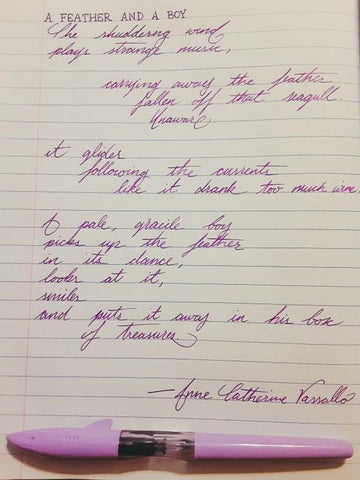 A FEATHER AND A BOY
The shuddering wind
plays strange music,
carrying away the feather
fallen off that seagull.
Unaware
it glides
following the currents
like it drank too much wine.
A pale, gracile boy
picks up the feather
in its dance,
looks at it,
smiles
and puts it away in his box
of treasures.
—Anne Catherine Vassallo